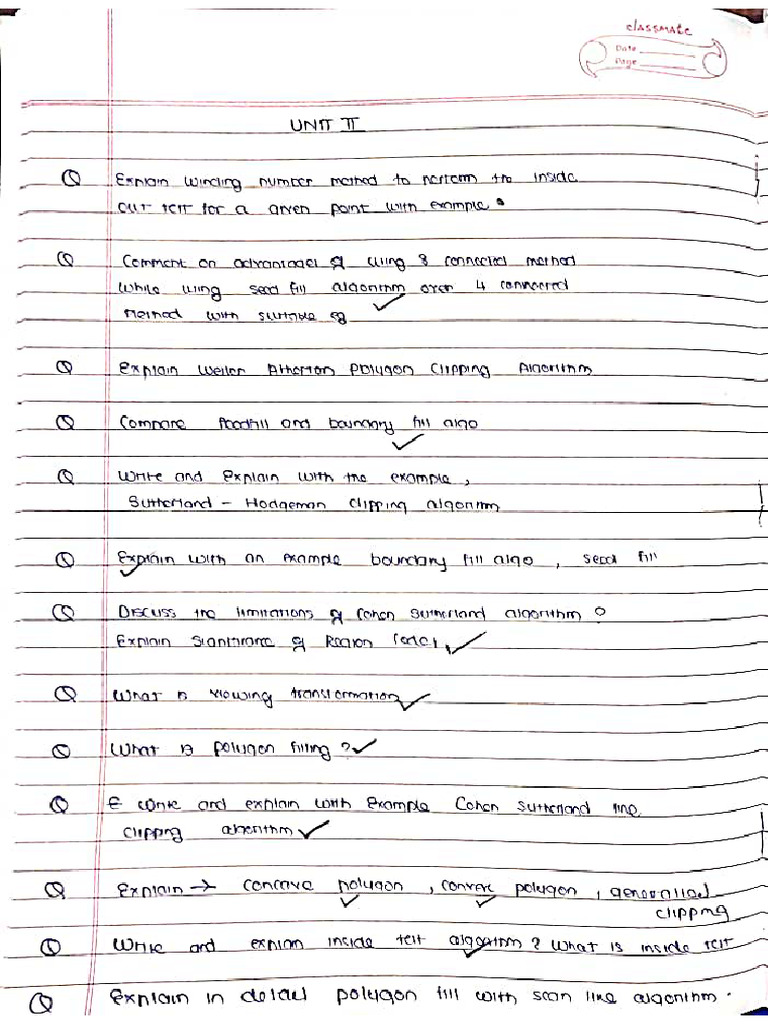 classmate
Date
Page
UNIT II
Q Explain winding number method to perform the inside
out test for a given point with example.
Q Comment on advantages of using 8 connected method
while using seed fill algorithm over 4 connected
method with suitable eg
Q Explain Weiler Atherton Polygon Clipping Algorithm
Q Compare floodfill and boundary fill algo
Q Write and Explain with the example,
Sutherland - Hodgeman clipping algorithm
Q Explain with an example boundary fill algo, seed fill
Q Discuss the limitations of Cohen Sutherland algorithm?
Explain Significance of Region Codes,
Q What is viewing transformation
Q What is polygon filling?
Q E write and explain with Example Cohen Sutherland line
clipping algorithm
Q Explain → Concave polygon, convex polygon, generalised
clipping
Q Write and explain inside test algorithm? What is inside test
Q Explain in detail polygon fill with scan line algorithm.